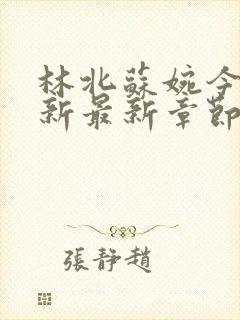 林北蘇婉今
新最新章節
張靜趙